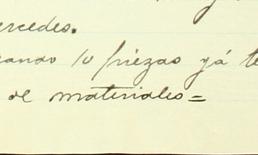 ercedes.
ando 10 piezas yá te
de materiales=